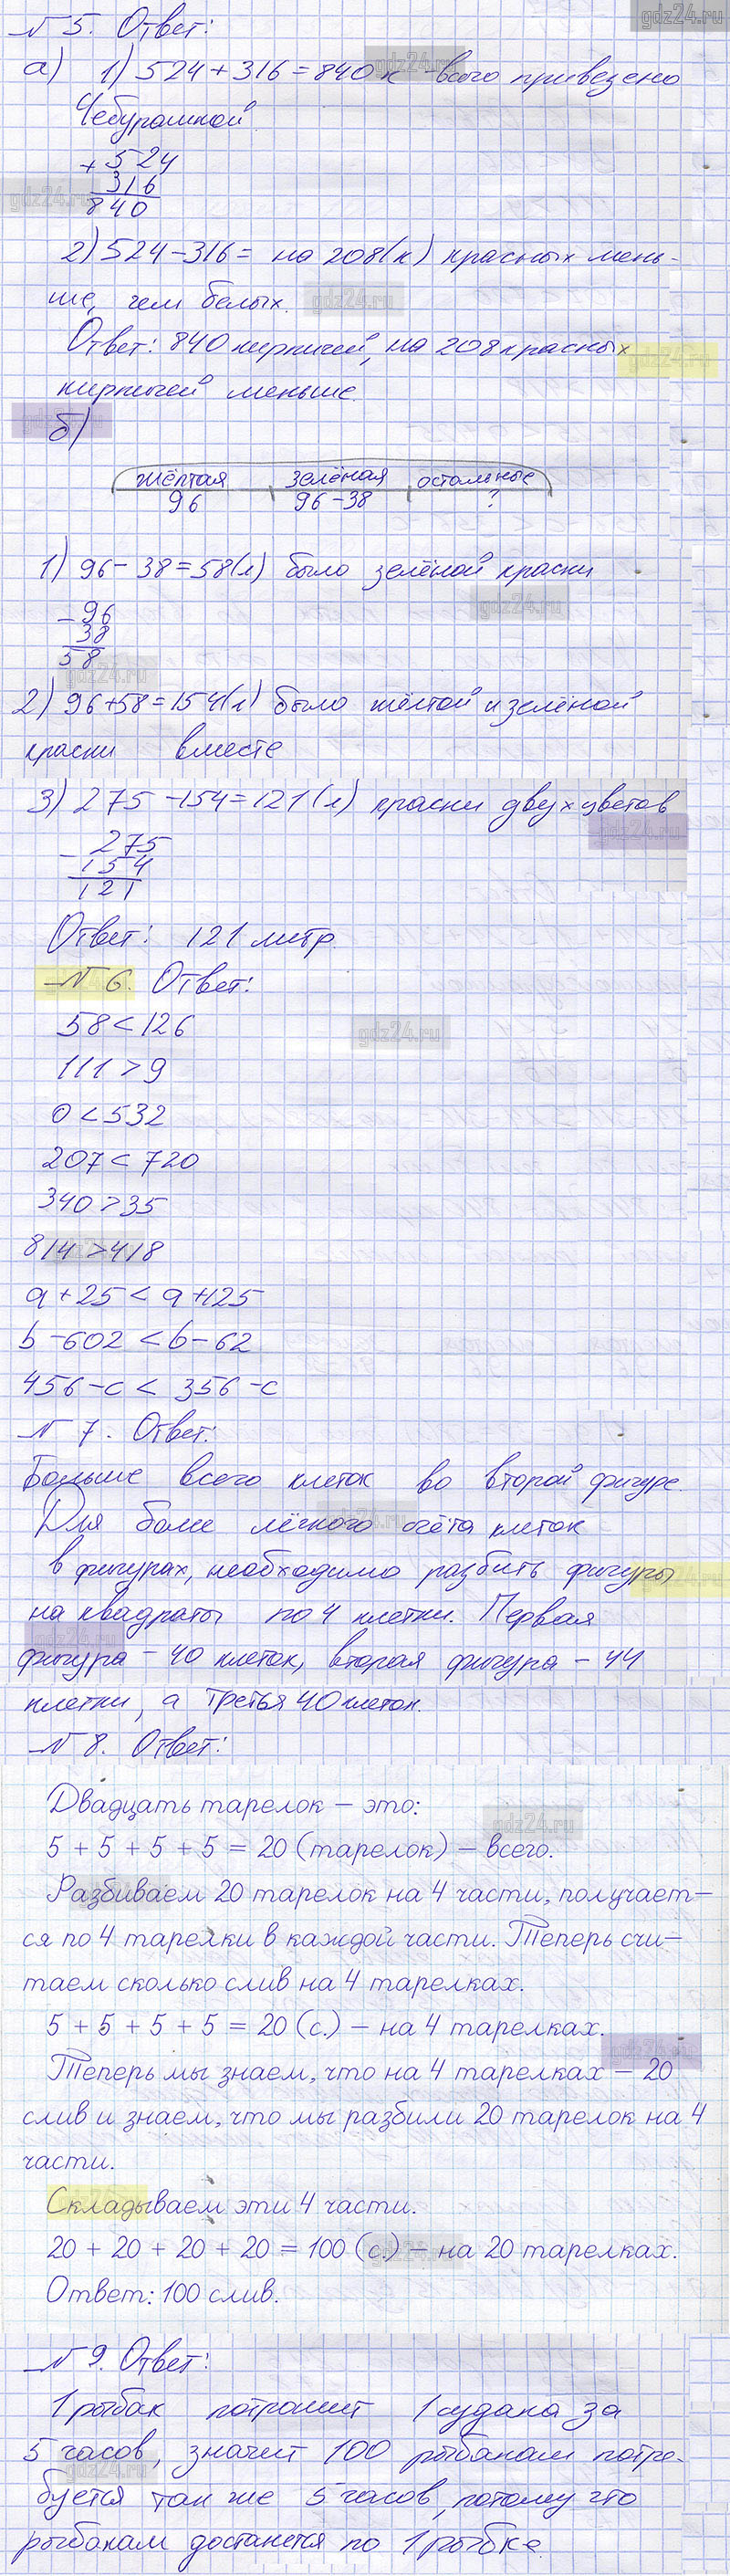 gdz24.ru
№ 5. Ответ:
а) 1) 524 + 316 = 840 к - всего привезено
Чебурашкой.
+ 524
316
840
2) 524 - 316 = на 208 (к) красных мень-
ше, чем белых.
Ответ: 840 кирпичей, на 208 красных
кирпичей меньше.
б)
жёлтая зелёная остальные
96 96 - 38 ?
1) 96 - 38 = 58 (л) было зелёной краски
- 96
38
58
2) 96 + 58 = 154 (л) было жёлтой и зелёной
краски вместе
3) 275 - 154 = 121 (л) краски двух цветов
- 275
154
121
Ответ: 121 литр.
№ 6. Ответ:
58 < 126
111 > 9
0 < 532
207 < 720
340 > 35
814 > 418
a + 25 < a + 125
b - 602 < b - 62
456 - c < 356 - c
№ 7. Ответ:
Больше всего клеток во второй фигуре.
Для более лёгкого счёта клеток
в фигурах, необходимо разбить фигуры
на квадраты по 4 клетки. Первая
фигура - 40 клеток, вторая фигура - 44
клетки, а третья 40 клеток.
№ 8. Ответ:
Двадцать тарелок – это:
5 + 5 + 5 + 5 = 20 (тарелок) – всего.
Разбиваем 20 тарелок на 4 части, получает–
ся по 4 тарелки в каждой части. Теперь счи–
таем сколько слив на 4 тарелках.
5 + 5 + 5 + 5 = 20 (с.) – на 4 тарелках.
Теперь мы знаем, что на 4 тарелках – 20
слив и знаем, что мы разбили 20 тарелок на 4
части.
Складываем эти 4 части.
20 + 20 + 20 + 20 = 100 (с.) – на 20 тарелках.
Ответ: 100 слив.
№ 9. Ответ:
1 рыбак потрошит 1 судака за
5 часов, значит 100 рыбакам потре-
буется так же 5 часов, потому что
рыбакам достанется по 1 рыбке.